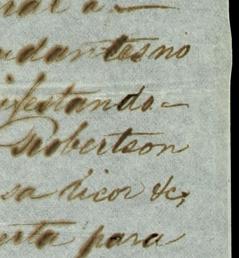 udantes no
ifestando=
Robertson
sa licor &c;
erta para